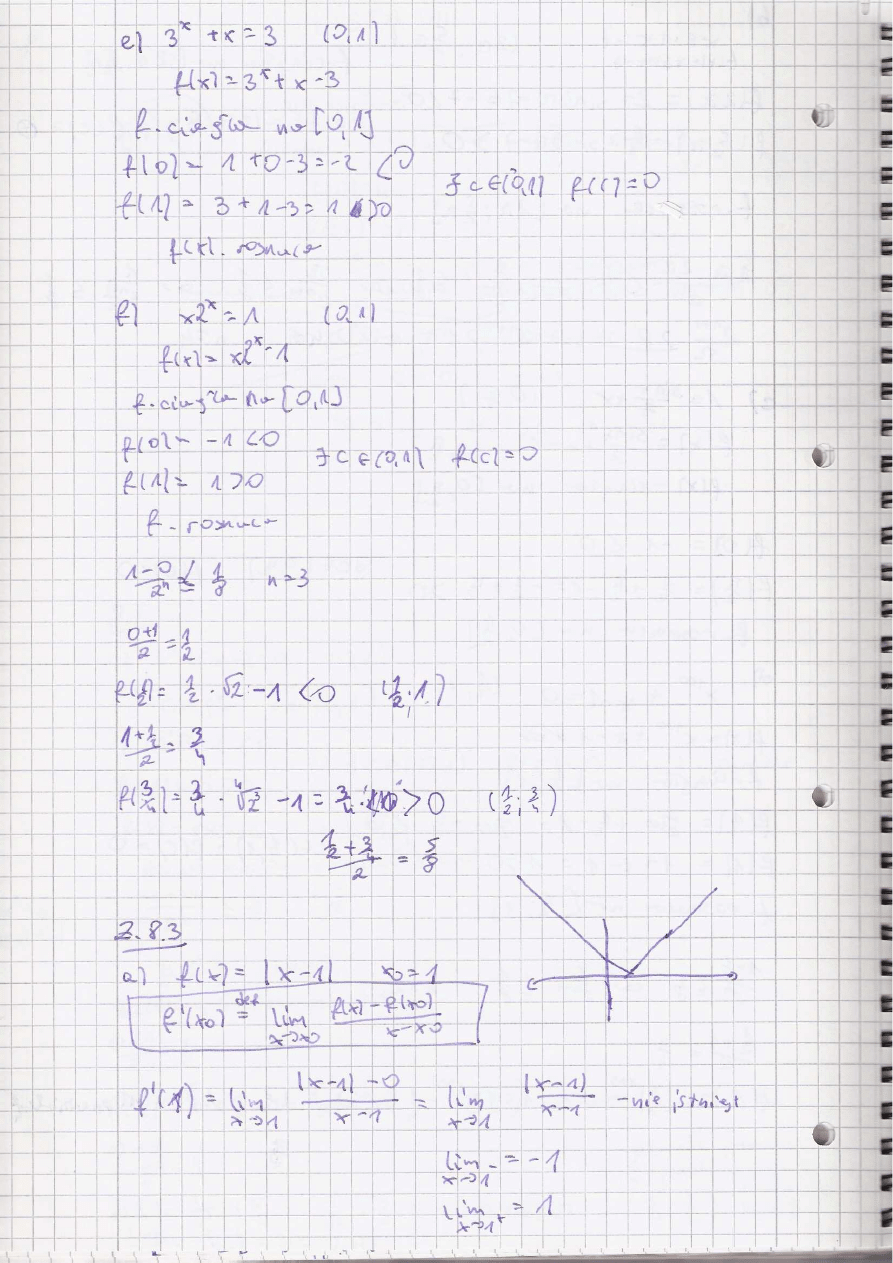 e) 3^x + x = 3 (0,1)
f(x) = 3^x + x - 3
f. ciągła na [0,1]
f(0) = 1 + 0 - 3 = -2 < 0
f(1) = 3 + 1 - 3 = 1 > 0
∃ c ∈ (0,1) f(c) = 0
f(x) - rosnąca
f) x2^x = 1 (0,1)
f(x) = x2^x - 1
f. ciągła na [0,1]
f(0) = -1 < 0
∃ c ∈ (0,1) f(c) = 0
f(1) = 1 > 0
f - rosnąca
(1-0)/2^n ≤ 1/8 n = 3
(0+1)/2 = 1/2
f(1/2) = 1/2 · √2 - 1 < 0 (1/2; 1)
(1 + 1/2)/2 = 3/4
f(3/4) = 3/4 · ⁴√2³ - 1 = 3/4 · > 0 (1/2; 3/4)
(1/2 + 3/4)/2 = 5/8
Z.8.3
a) f(x) = |x-1| x0 = 1
f'(x0) def= lim x→x0 (f(x) - f(x0))/(x - x0)
f'(1) = lim x→1 (|x-1| - 0)/(x-1) = lim x→1 |x-1|/(x-1) - nie istnieje
lim x→1⁻ = -1
lim x→1⁺ = 1